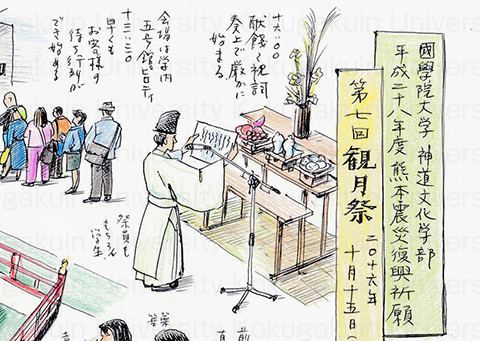 國學院大学 神道文化学部
平成二十八年度 熊本震災復興祈願
第七回 観月祭
二〇十六年
十月十五日(
十六:〇〇
献饌と祝詞
奏上で厳かに
始まる
会場は学内
五号館ピロティ
十三:三〇
早くも
お客様の
待ち行列が
でき始める
祭員も
もちろん
学生
篳篥
Kokugakuin University